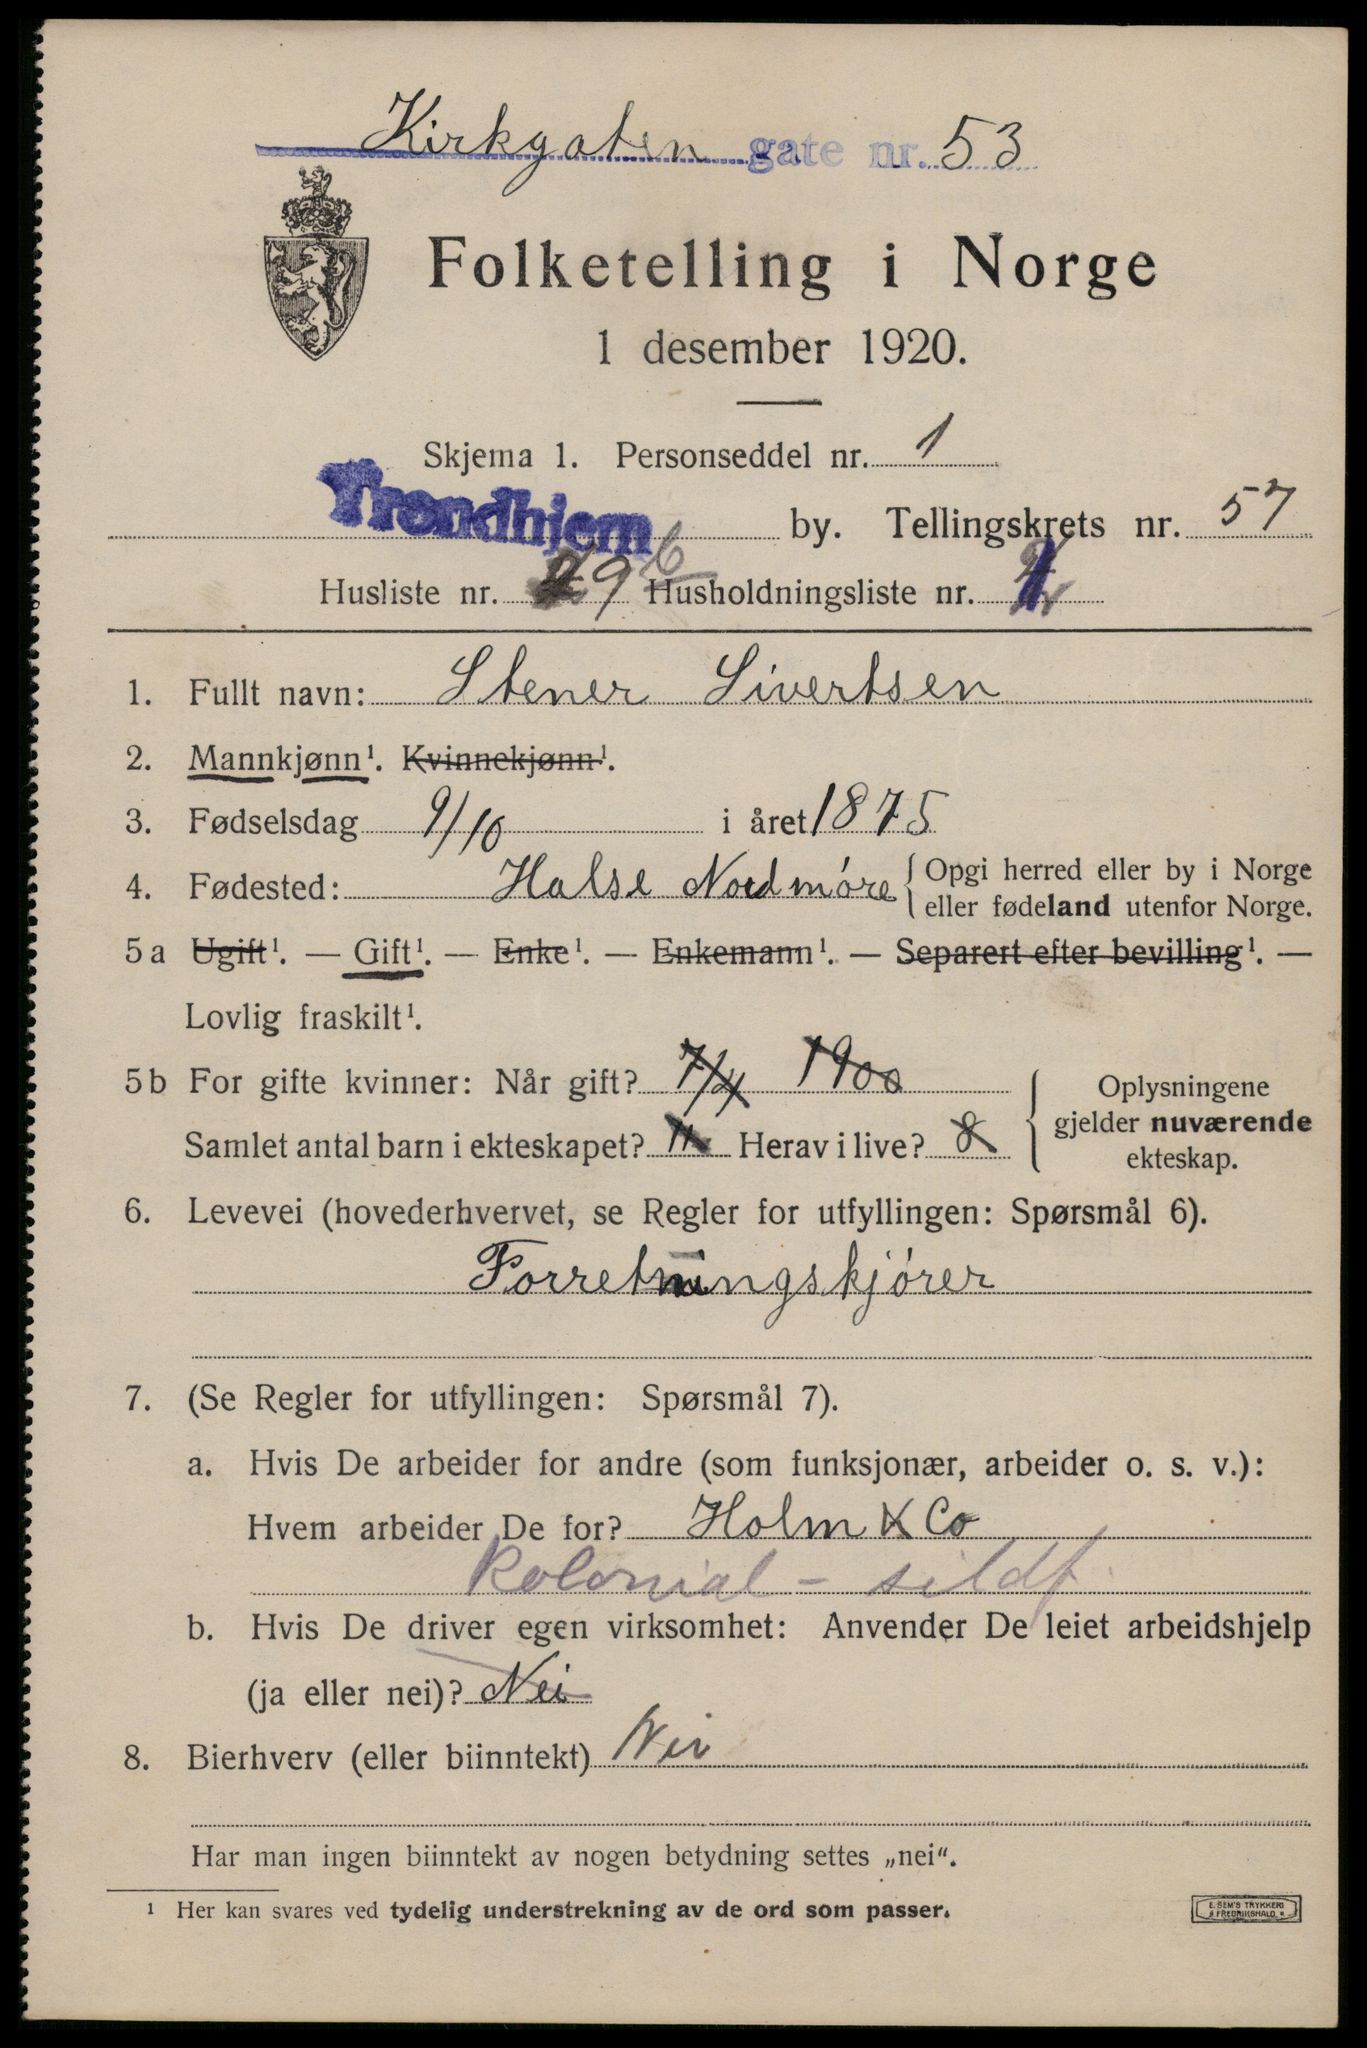 Kirkgaten gate nr. 53
Folketelling i Norge
1 desember 1920.
Skjema 1. Personseddel nr. 1
Trondhjem by. Tellingskrets nr. 57
Husliste nr. 9 6 Husholdningsliste nr.
1. Fullt navn: Stener Sivertsen
2. Mannkjønn¹. Kvinnekjønn¹.
3. Fødselsdag 9/10 i året 1875
4. Fødested: Halse Nordmøre { Opgi herred eller by i Norge
eller fødeland utenfor Norge.
5a Ugift¹. — Gift¹. — Enke¹. — Enkemann¹. — Separert efter bevilling¹. —
Lovlig fraskilt¹.
5b For gifte kvinner: Når gift? 7/4 1900
Samlet antal barn i ekteskapet? 11 Herav i live? 8
{ Oplysningene
gjelder nuværende
ekteskap.
6. Levevei (hovederhvervet, se Regler for utfyllingen: Spørsmål 6).
Forretningskjører
7. (Se Regler for utfyllingen: Spørsmål 7).
a. Hvis De arbeider for andre (som funksjonær, arbeider o. s. v.):
Hvem arbeider De for? Holm & Co
Kolonial - sildf.
b. Hvis De driver egen virksomhet: Anvender De leiet arbeidshjelp
(ja eller nei)? Nei
8. Bierhverv (eller biinntekt) Nei
Har man ingen biinntekt av nogen betydning settes „nei“.
¹ Her kan svares ved tydelig understrekning av de ord som passer.
E. SEM'S TRYKKERI
FREDRIKSHALD.